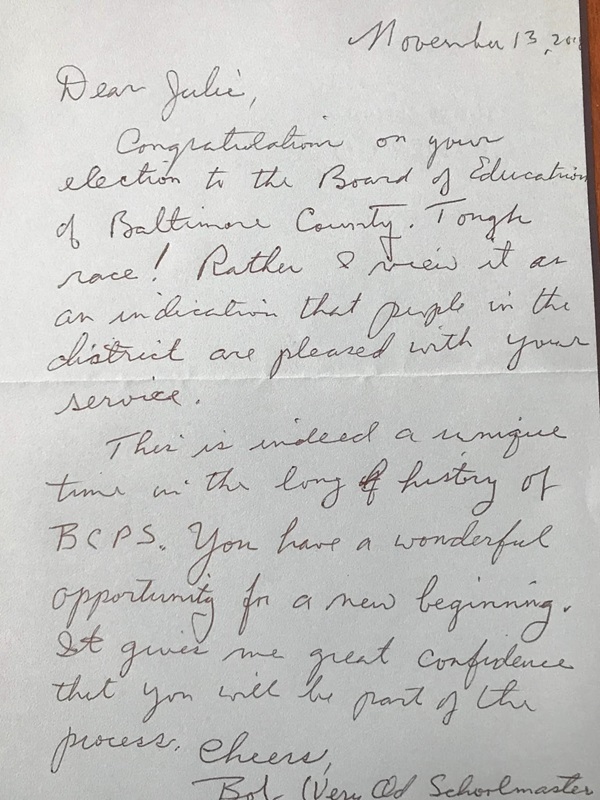 November 13, 201
Dear Julie,
Congratulation on your
election to the Board of Education
of Baltimore County. Tough
race! Rather I view it as
an indication that people in the
district are pleased with your
service.
This is indeed a unique
time in the long history of
BCPS. You have a wonderful
opportunity for a new beginning.
It gives me great confidence
that you will be part of the
process. Cheers,
Bob (Very Old Schoolmaster